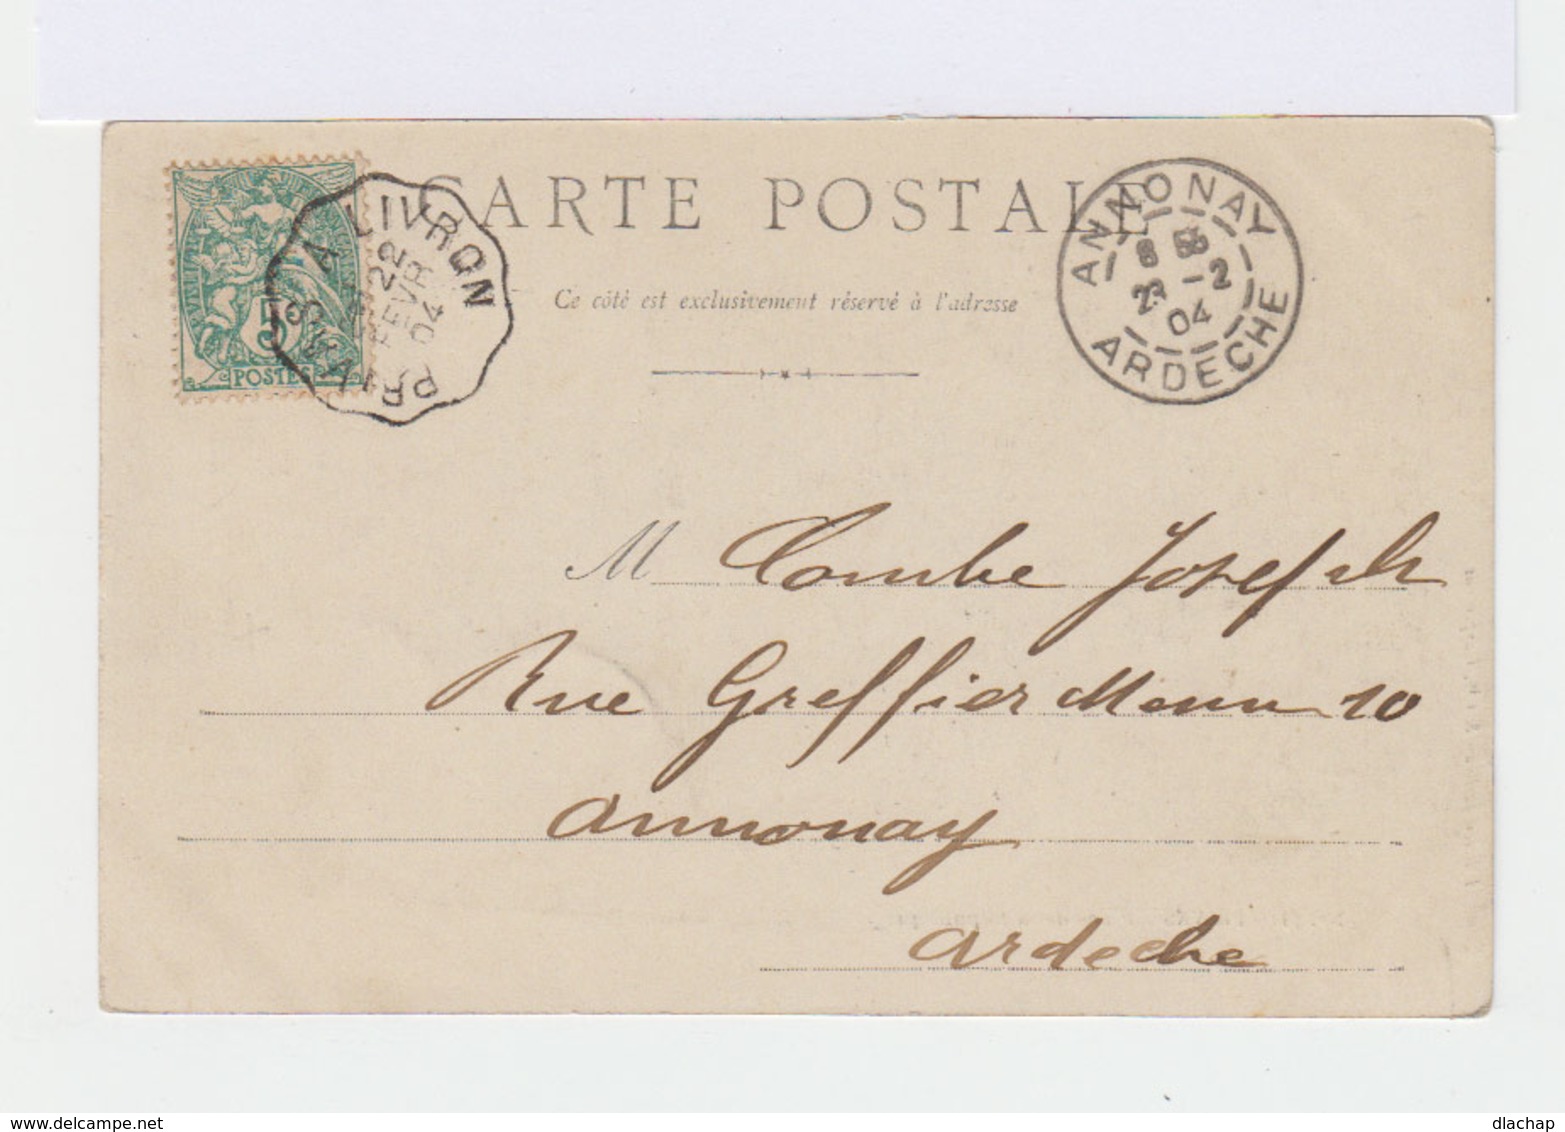 CARTE POSTALE
Ce côté est exclusivement réservé à l'adresse
5
POSTES
PRIVAS A LIVRON
22
FEVR
04
ANNONAY
23 -2
04
ARDECHE
M Combe Joseph
Rue Greffier Monnier 10
annonay
ardeche
www.delcampe.net
dlachap